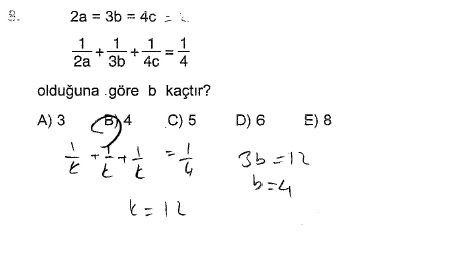 2a = 3b = 4c =
1/2a + 1/3b + 1/4c = 1/4
olduğuna göre b kaçtır?
A) 3 B) 4 C) 5 D) 6 E) 8
1/k + 1/k + 1/k = 1/4
k = 12
3b = 12
b = 4